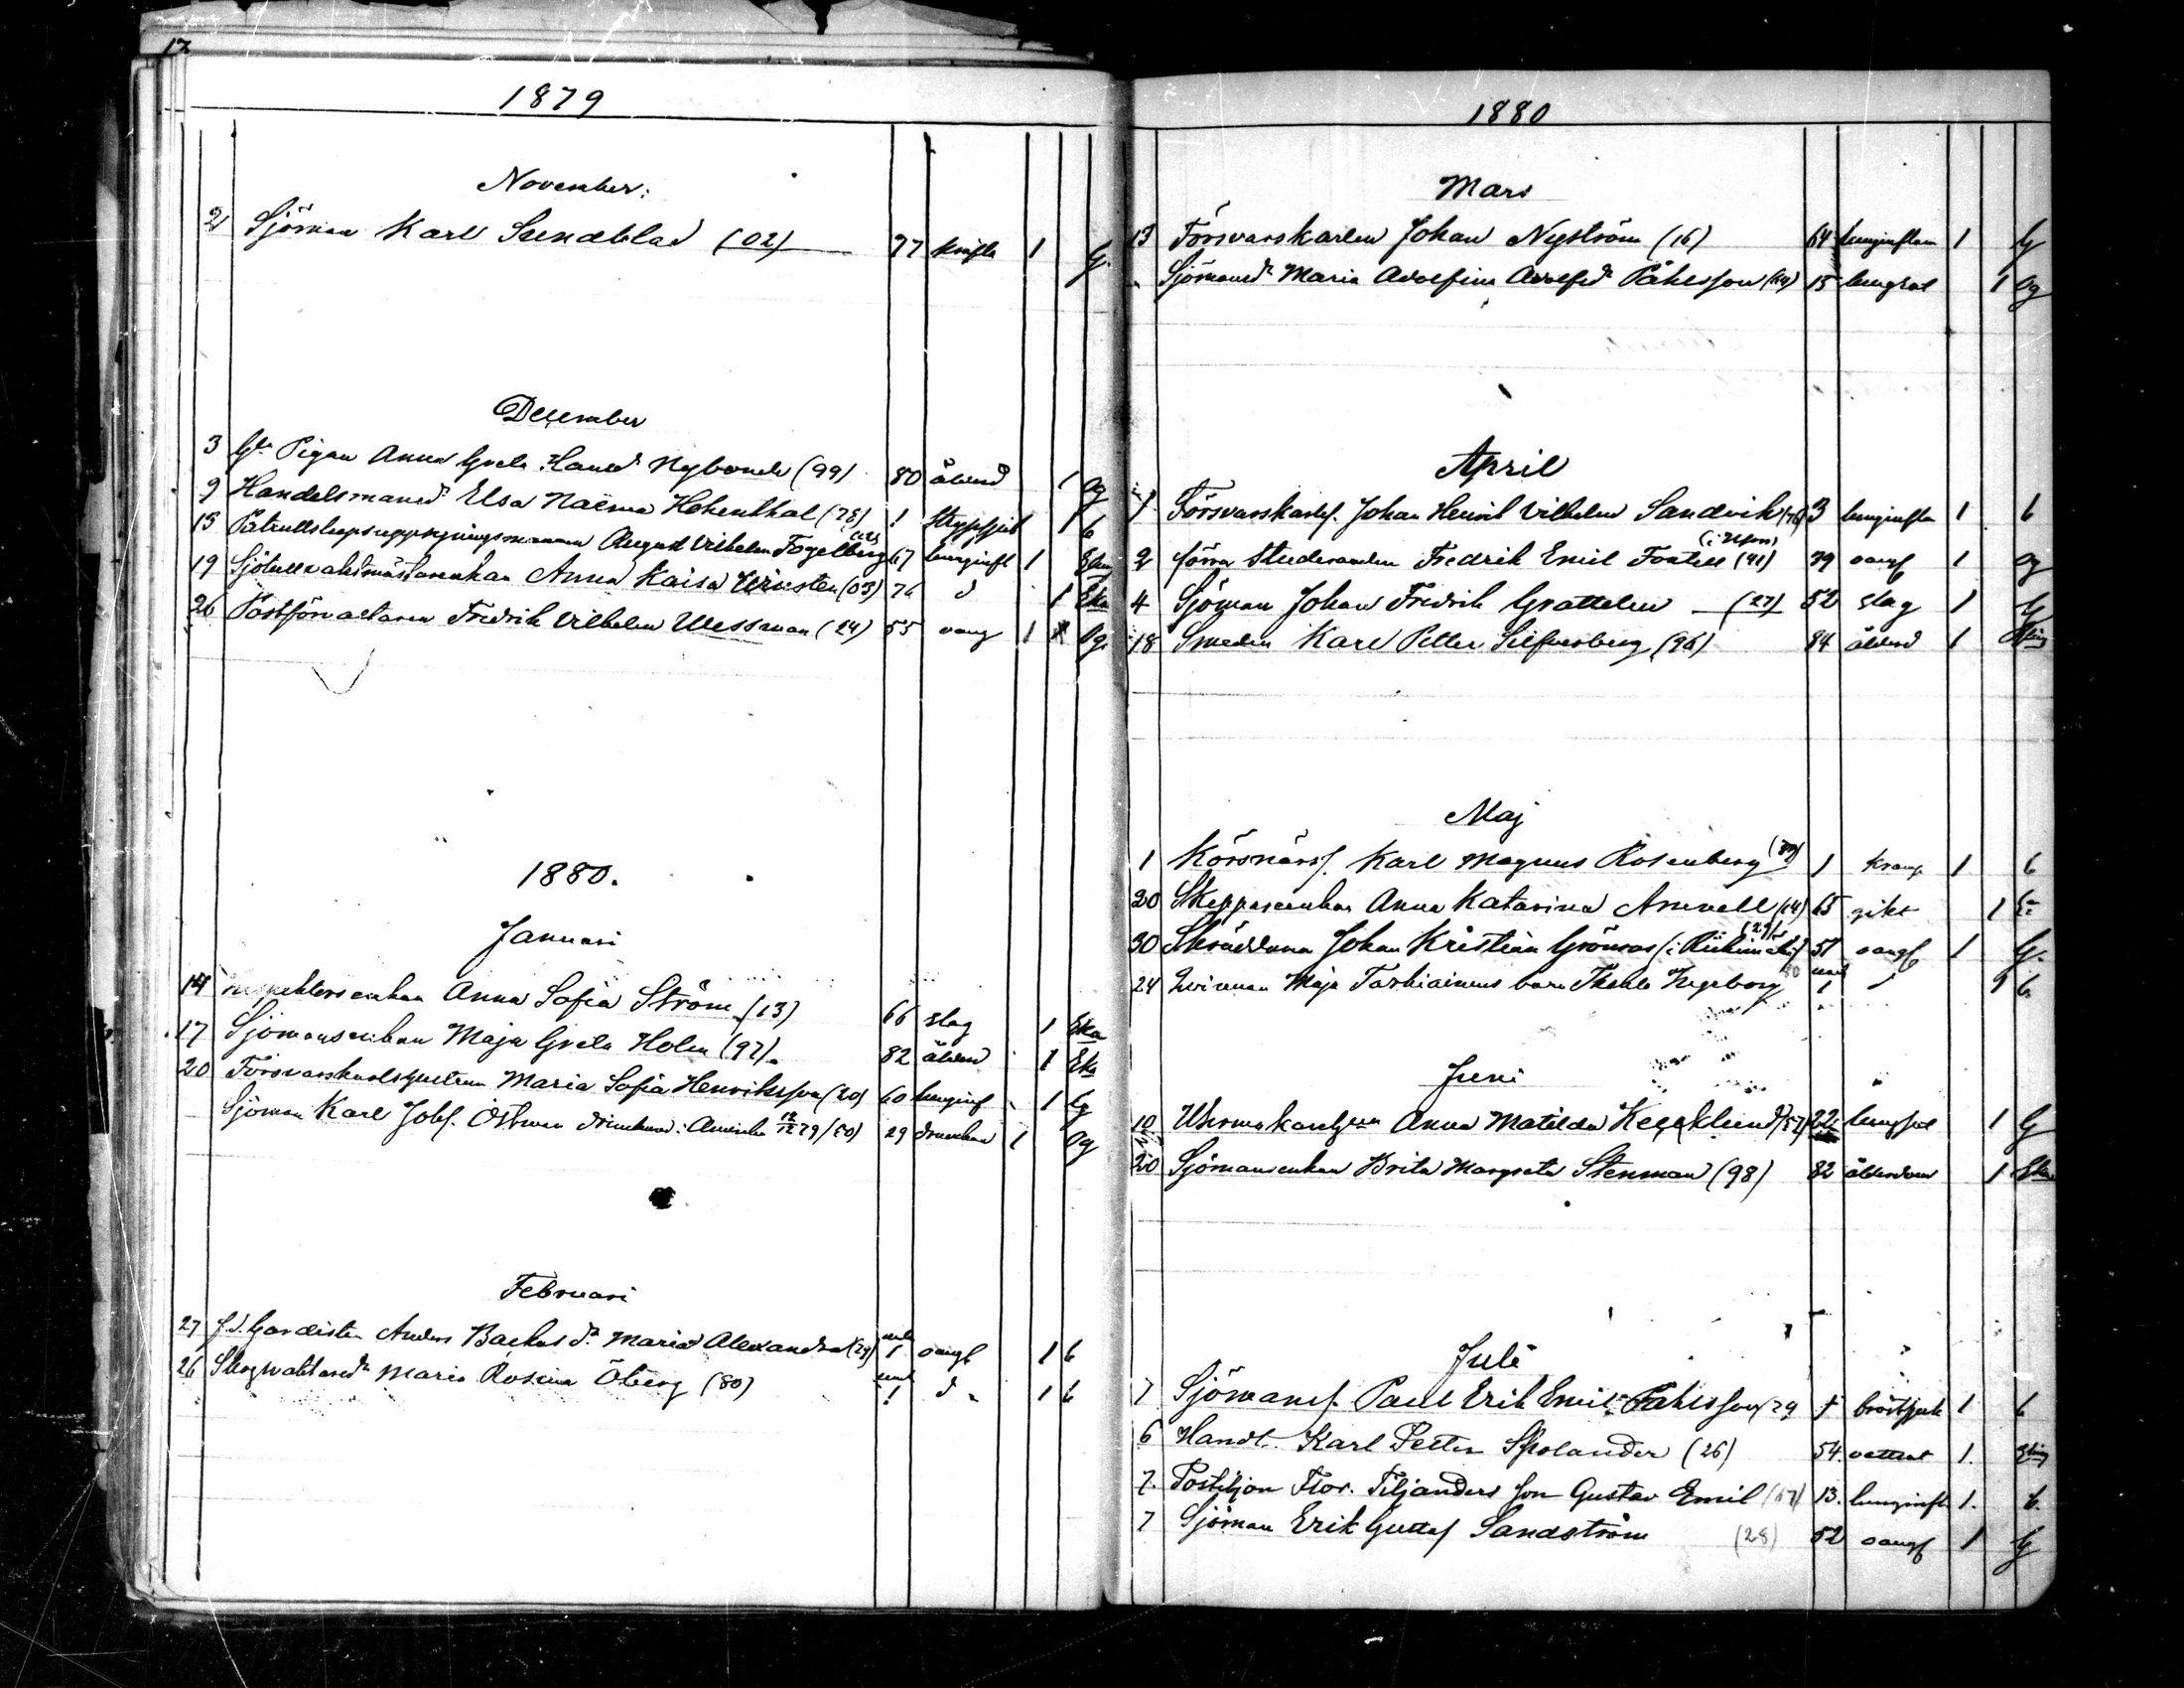 17
1879
November.
2 Sjöman Karl Sundblad (02) 77 kräfta 1 G.
December
3 Gla Pigan Anna Greta Hansd Nybonde (99) 80 ålderd 1 Og
9 Handelsmansdr Elsa Naëma Hohenthal (78) 1 Strypsjuk 1 b
15 August Vilhelm Fogelberg (12) 67 lunginfl 1
19 Sjötullvaktmästarenkan Anna Kaisa (03) 76 d 1 Eka
26 Postförvaltaren Fredrik Vilhelm Wessman (24) 55 oang 1 Og.
1880.
Januari
14 Inspektorsenkan Anna Sofia Ström (13) 66 slag 1 Eka
17 Sjömansenkan Maja Greta Holm (97). 82 ålderd 1 Eka
20 Försvarskarlshustrun Maria Sofia Henriksson (20) 60 lunginf 1 G
Sjöman Karl Johs. Östman drunknad i Amerika 12/12 79 (50) 29 drunknad 1 Og
Februari
27 f.d. Gardisten Anders Backas dr Maria Alexandra (79) 1 oangf 1 b
26 Skogvaktaredr Maria Rosina Öberg (80) 1 d 1 b
1880
Mars
13 Försvarskarlen Johan Nyström (16) 64 lunginflam 1 G
" Sjömansdr Maria Adolfina Adolfsdr Påhlsson (64) 15 lungsot 1 Og
April
1 Försvarskarlss. Johan Henrik Vilhelm Sandvik (76) 3 lunginflam 1 b
2 förra Studeranden Fredrik Emil Fontell (41) (i Hfors) 39 oangf 1 Og
4 Sjöman Johan Fredrik Grättelin (27) 52 slag 1 G
18 Smeden Karl Petter Silfverberg (96) 84 ålderd 1
Maj
1 Körsnärss. Karl Magnus Rosenberg (79) 1 kramp 1 b
20 Skepparenkan Anna Katarina Arnvall (14) 65 gikt 1
30 Skräddaren Johan Kristian Grönroos (i Riihimäki) (29) 51 oangf 1 G.
24 Qvinnan Maja Tarkiainens barn Thekla Ingeborg 80 1 d 1 b
Juni
10 Anna Matilda Keecklund (57) 22 lungsot 1 G
20 Sjömansenkan Brita Margreta Stenman (98) 82 ålderdom 1 Eka
Juli
7 Sjömans. Paul Erik Emil Påhlsson (79 1 bröstsjuk 1 b
6 Handl. Karl Petter Spolander (26) 54. vattsot 1.
7. Postiljon Flor. Tiljanders son Gustav Emil (67) 13. lunginfl. 1. b.
7 Sjöman Erik Gustaf Sandström (28) 52 oangf 1 G